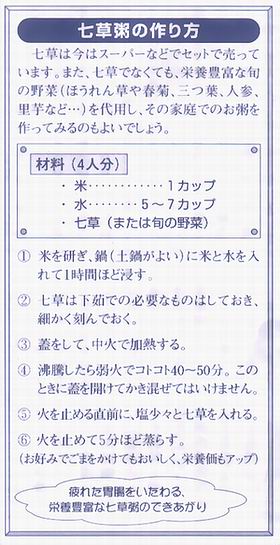 七草粥の作り方
七草は今はスーパーなどでセットで売って
います。また、七草でなくても、栄養豊富な旬
の野菜（ほうれん草や春菊、三つ葉、人参、
里芋など…）を代用し、その家庭でのお粥を
作ってみるのもよいでしょう。
材料（4人分）
・米…………1カップ
・水………5～7カップ
・七草（または旬の野菜）
① 米を研ぎ、鍋（土鍋がよい）に米と水を入
れて1時間ほど浸す。
② 七草は下茹での必要なものはしておき、
細かく刻んでおく。
③ 蓋をして、中火で加熱する。
④ 沸騰したら弱火でコトコト40～50分。この
ときに蓋を開けてかき混ぜてはいけません。
⑤ 火を止める直前に、塩少々と七草を入れる。
⑥ 火を止めて5分ほど蒸らす。
（お好みでごまをかけてもおいしく、栄養価もアップ）
疲れた胃腸をいたわる、
栄養豊富な七草粥のできあがり